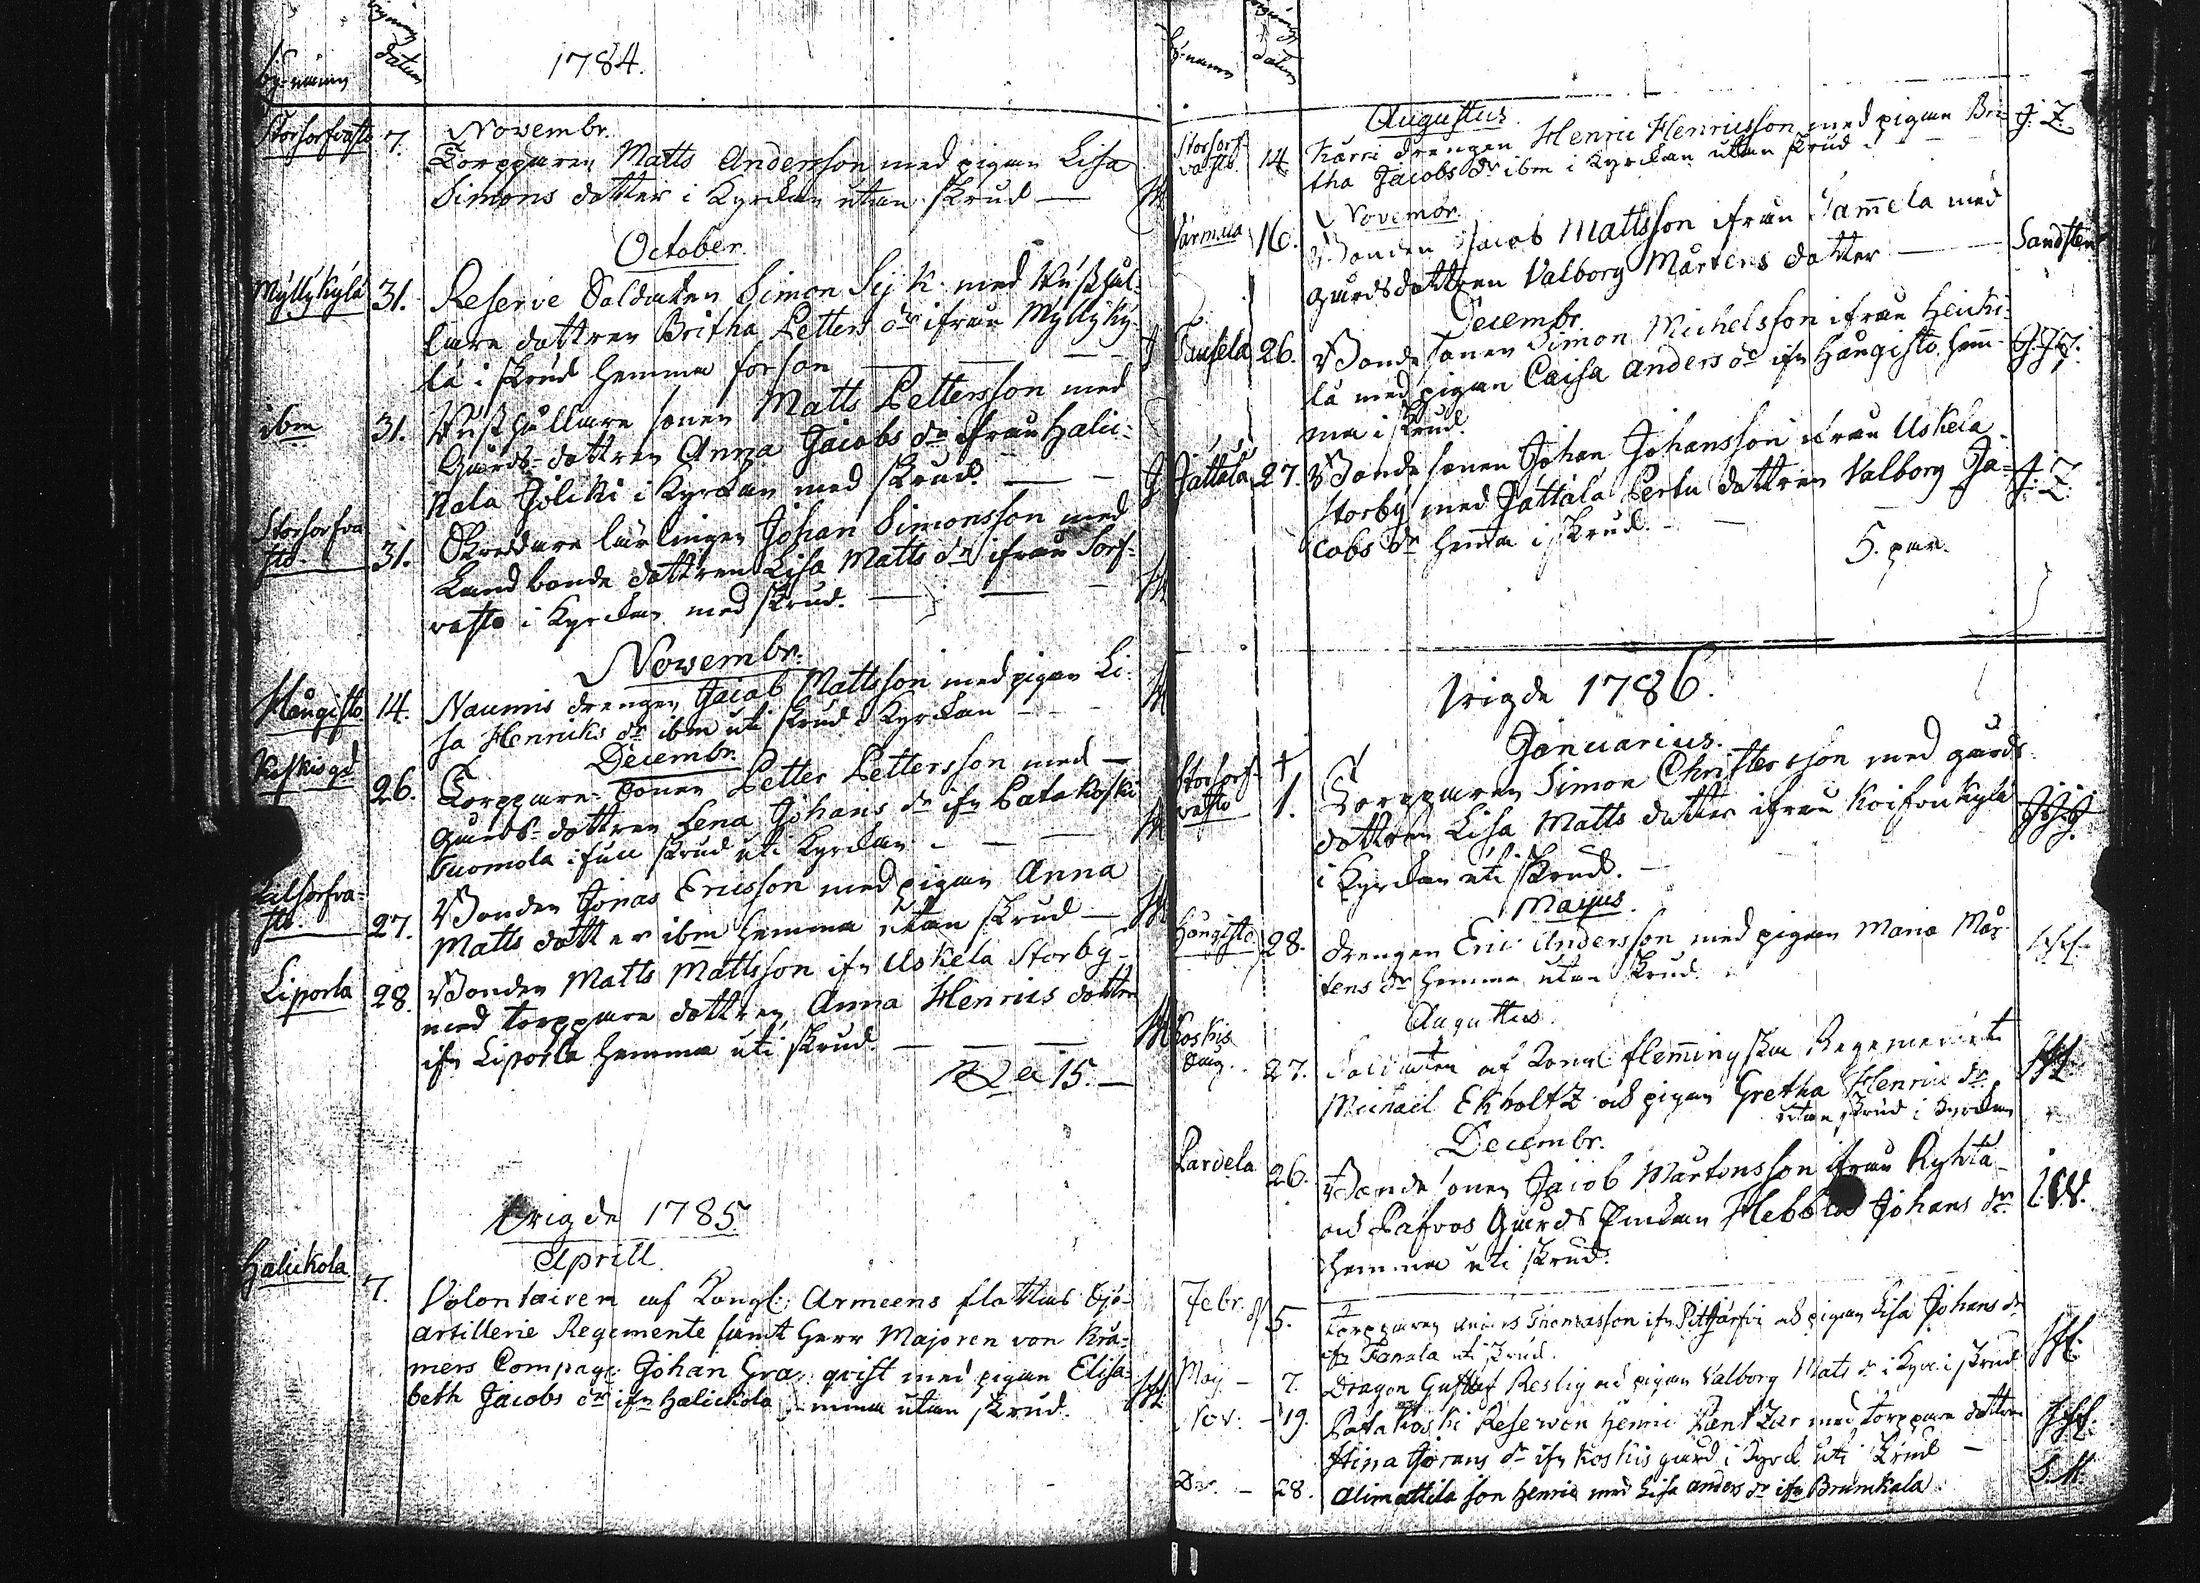 By-namn
datum
1784.
Storsorfvasto 7.
Novembr.
Torpparen Matts Andersson med pigan Lisa
Simons dotter i Kyrckan utan skrud —
October.
Mÿllÿkÿlä 31.
Reserve Soldaten Simon med
lare dottren Britha Petters dr ifrån Mÿllÿkÿ-
lä i skrud hemma
ibm 31.
sonen Matts Pettersson med
Gårds-dottren Anna Jacobs dr ifrån Hali-
kala Jölcki i Kyrckan med skrud. —
Storsorfva
sto. 31.
Skreddare lärlingen Johan Simonsson med
Landbonde dottren Lisa Matts dr ifrån Sorf-
vasto i Kyrckan med skrud. —
Novembr.
Hångisto 14.
Naumis drengen Jacob Mattsson med pigan Li-
sa Henriks dr ibm uti skrud i Kyrckan —
Decembr.
Koskisgd 26.
Torppare-Sonen Petter Pettersson med —
Gårds-dottren Lena Johans dr ifn Patakoski
Suomola i full skrud uti Kyrckan —
sorfva-
sto. 27.
Bonden Jonas Ericsson med pigan Anna
Matts dotter ibm hemma utan skrud —
Liporla 28.
Bonden Matts Mattsson ifn Uskela Storbÿ-
med torppare dottren Anna Henrics dotter
ifn Liporla hemma uti skrud — — —
15. —
vigde 1785
Aprill.
Halickola 7.
Volontairen af Kongl. Armeens flottas Sjö-
artillerie Regemente samt Herr Majoren von Krä-
mers Compagn. Johan Gra qvist med pigan Elisa-
beth Jacobs dr ifn Halickola hemma utan skrud.
By-namn
datum
Augustus.
Storsorf-
vasto. 14
Karri drengen Henric Henricsson med pigan Bri-
tha Jacobs dr ibm i Kyrckan uttan skrud
J. Z.
Novembr.
Varmua 16.
Bonden Jacob Mattsson ifrån Tammela med
gårdsdottren Valborg Mårtens dotter —
Sandsten
Decembr.
26.
Bonde sonen Simon Michelsson ifrån Heicki-
lä med pigan Caisa Anders dr ifn Hångisto hem-
ma i skrud.
Jättälä 27.
Bonde sonen Johan Johansson ifrån Uskela
storbÿ med Jättälä Pertu dottren Valborg Ja-
cobs dr hemma i skrud. —
J. Z.
5. par.
vigde 1786.
Januarius.
Storsorf-
vasto 1.
Torpparen Simon Christersson med gårds-
dottren Lisa Matts dotter ifrån Koifwukÿlä
i Kyrckan uti skrud. —
Majus.
Hångisto 28.
drengen Eric Andersson med pigan Maria Mår-
tens dr hemma utan skrud.
Augustus.
Koskis
27.
Soldaten af Kongl. flemingska Regementet
Michael Ekholtz och pigan Gretha Henric dr
utan skrud i Kyrckan
Decembr.
Pardela 26.
Bonde sonen Jacob Mårtensson ifrån Rÿhtä-
och Pafvos Gårds Enckan Hebbla Johans dr
hemma uti skrud.
Febr. 5.
Torpparen Anders Thomasson ifn Pitkjärfvi och pigan Lisa Johans dr
ifn Tanala uti skrud.
May — 7.
Dragon Gustaf Reslig och pigan Valborg Mats dr i Kyrc. i skrud
Nov: — 19.
Patakoski Reserven Henric med torppare dottren
Stina Görans dr ifn Koskis gård i Kyrck uti skrud —
Dec. — 28.
Alimattila son Henric med Lisa Anders dr ifn Brumkala
S. M.